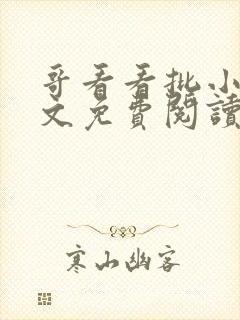 哥看看批小
文免費閱讀
寒山幽客